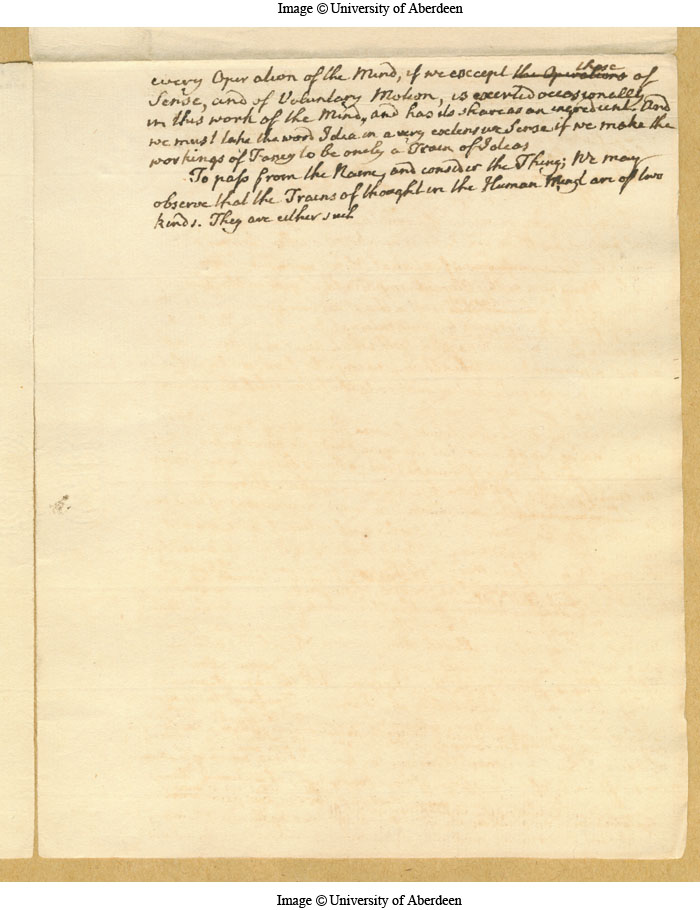 Image © University of Aberdeen
every Operation of the Mind, if we except the Operations those of
Sense, and of Voluntary Motion, is exerted occasionally
in this work of the Mind, and has its share as an ingredient. And
we must take the word Idea in a very extensive Sense if we make the
workings of Fancy to be onely a Train of Ideas
To pass from the Name, and consider the Thing; We may
observe that the Trains of thought in the Human Mind are of two
kinds. They are either such
Image © University of Aberdeen